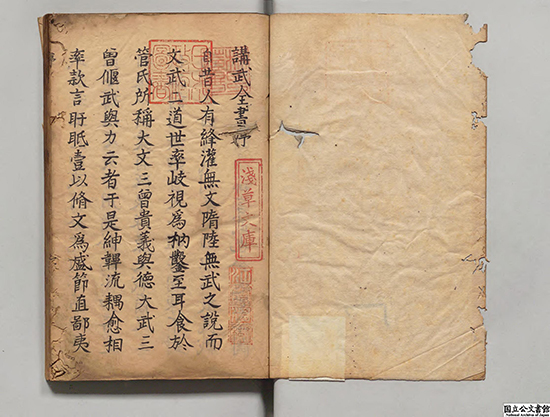 講武全書序
自昔人有絳灌無文隋陸無武之說而
文武二道世率歧視為枘鑿至耳食於
管氏所稱大文三曾貴義與德大武三
曾偃武與力云者于是紳韠流耦愈相
率款言盱眂壹以脩文為盛節直鄙夷
淺草文庫
国立公文書館
National Archives of Japan